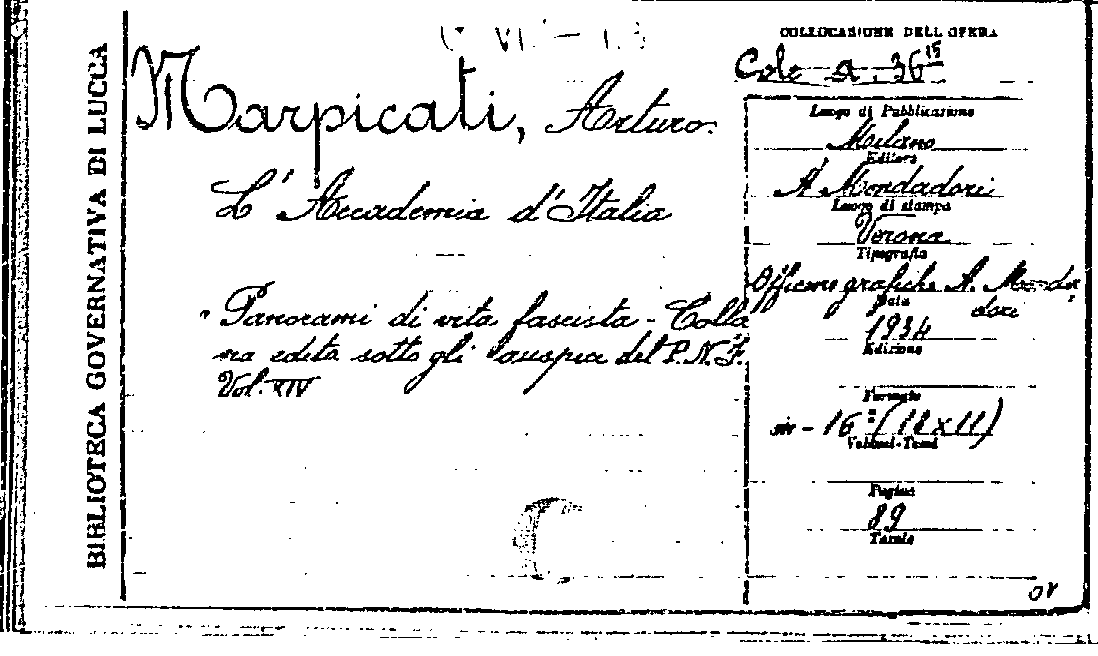 BIBLIOTECA GOVERNATIVA DI LUCCA
Marpicati, Arturo.
L'Accademia d'Italia
Panorami di vita fascista - Colla
na edita sotto gli auspici del P.N.F.
Vol. XIV
COLLOCAZIONE DELL'OPERA
A. 36 15
Luogo di Pubblicazione
Milano
Editore
A. Mondadori
Luogo di stampa
Verona
Tipografia
Officine grafiche A. Monda
dori
Data
1934
Edizione
Formato
in - 16º (18x11)
Volumi-Tomi
Pagine
89
Tavole